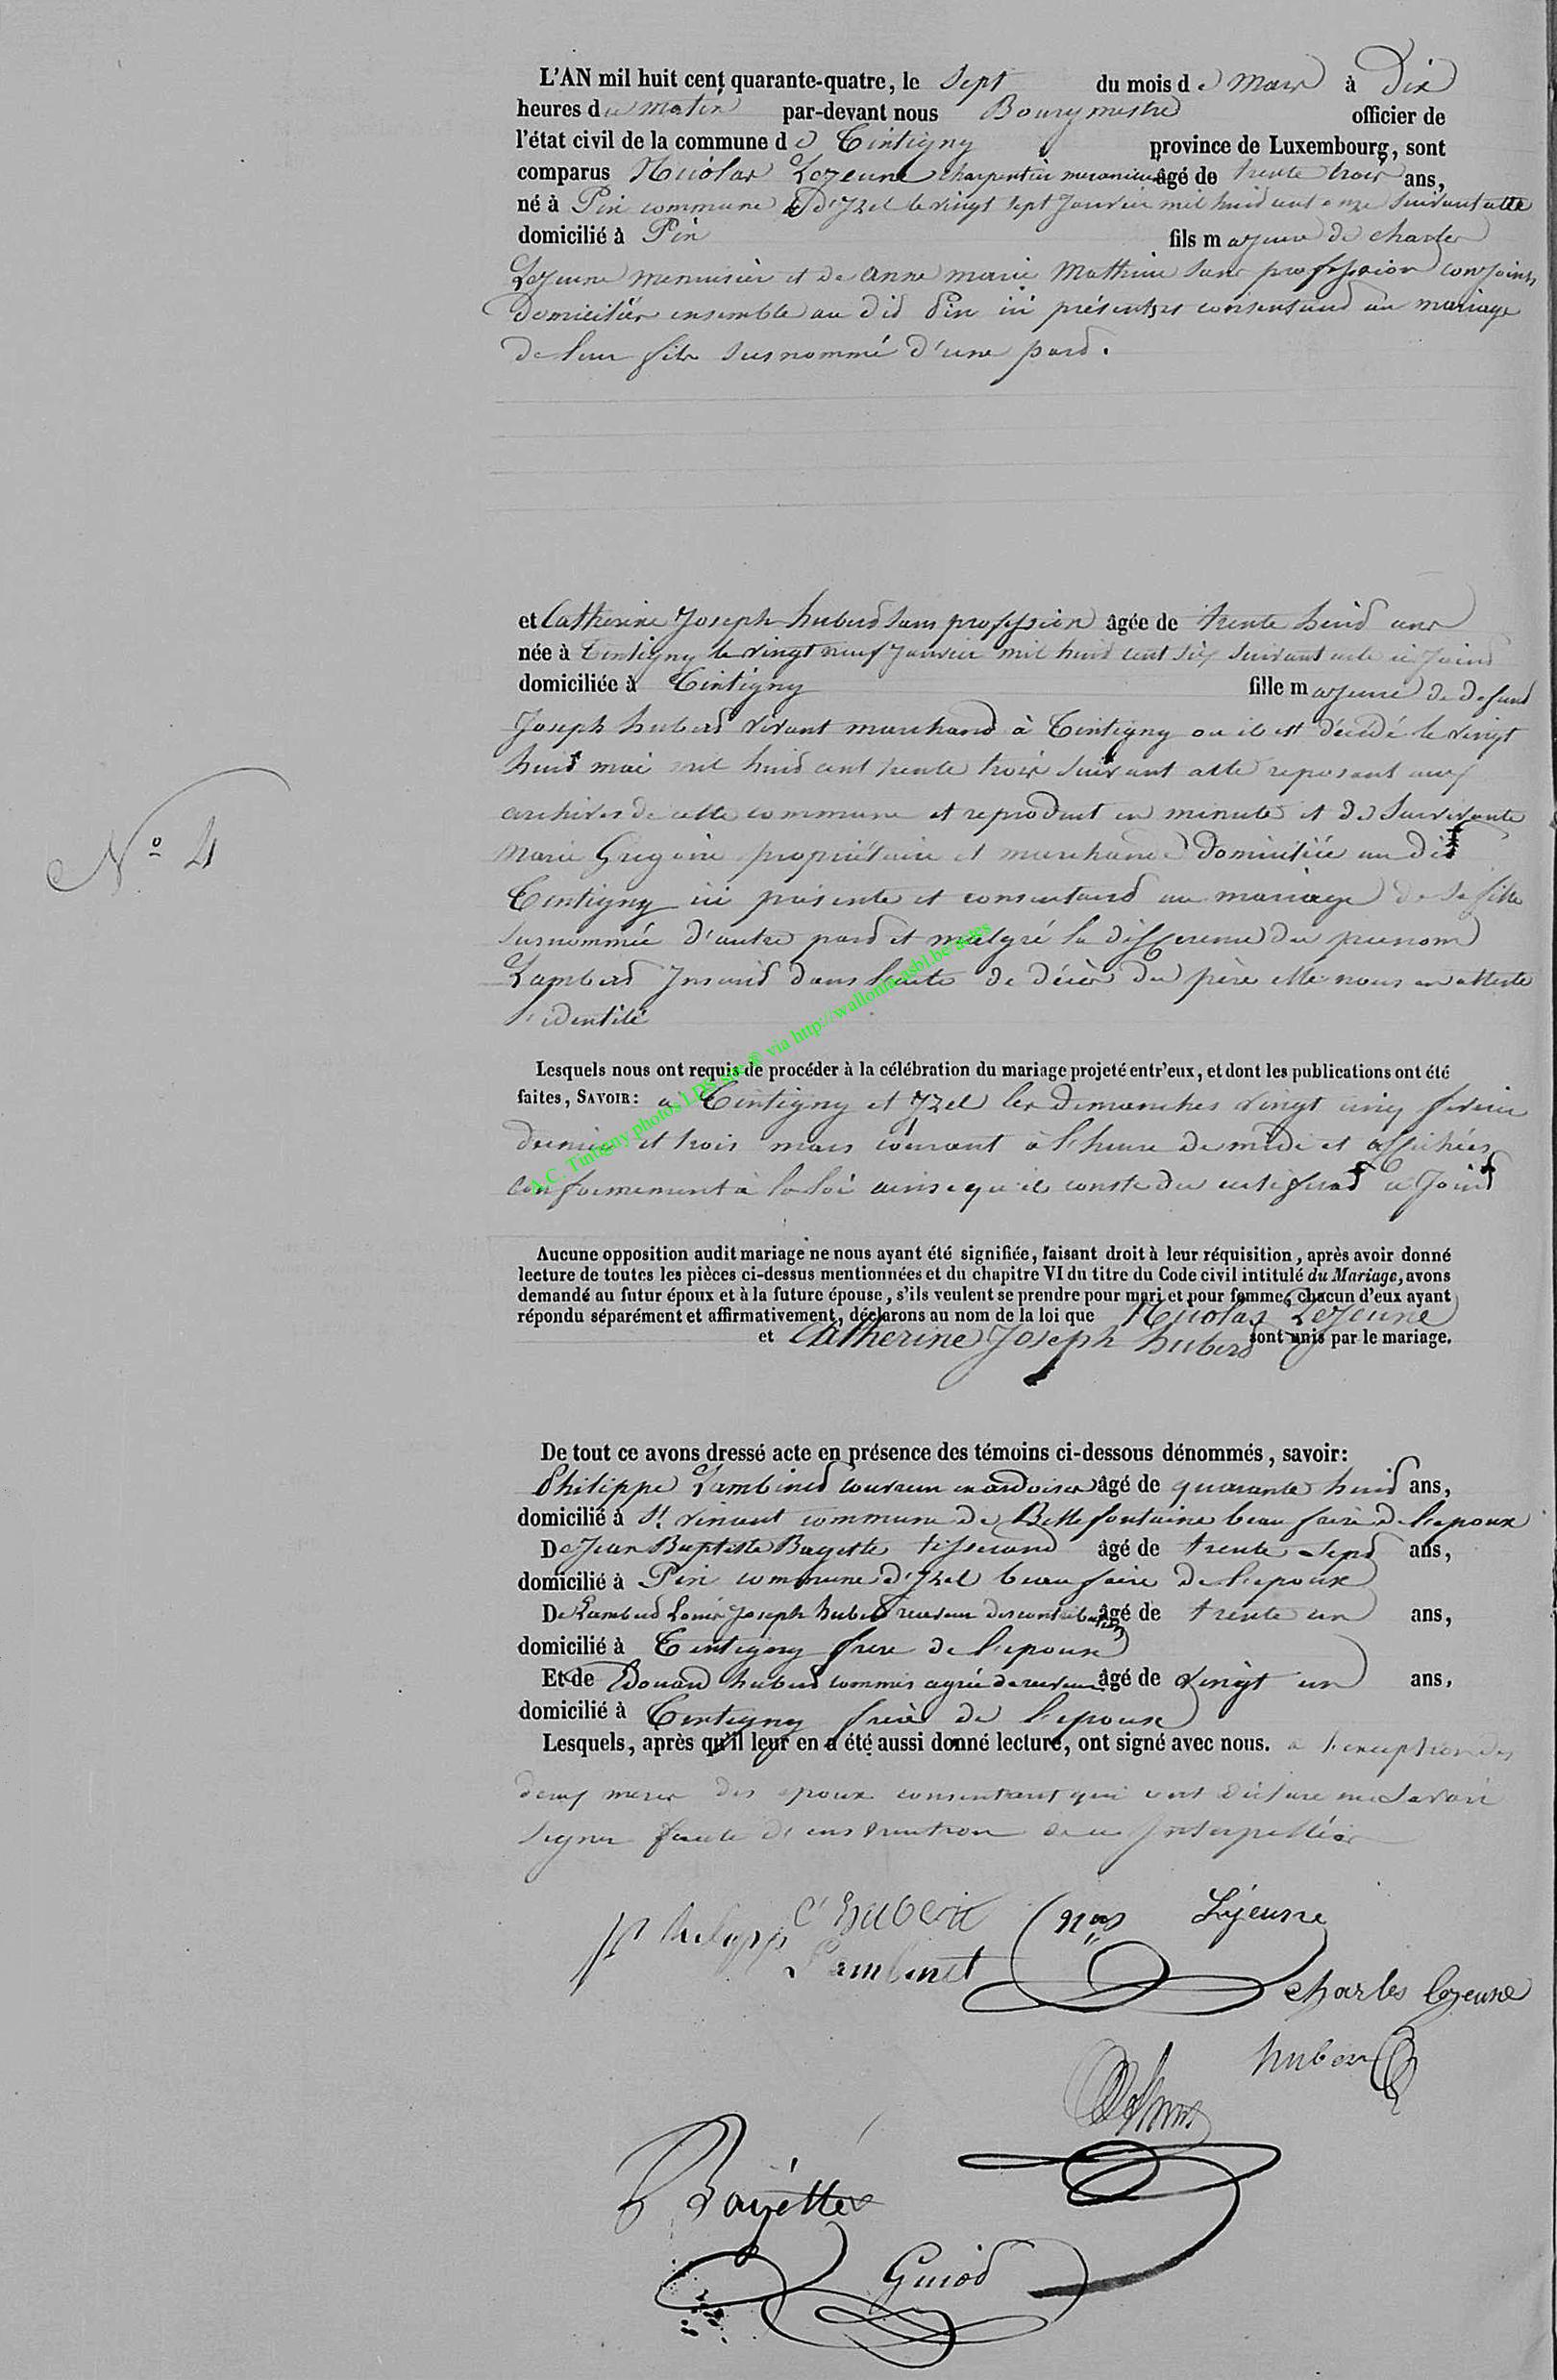 L'AN mil huit cent quarante-quatre, le Sept du mois de Mars à Dix
heures du matin par-devant nous Bourgmestre officier de
l'état civil de la commune de Tintigny province de Luxembourg, sont
comparus Nicolas Lejeune charpentier mecanicien âgé de trente trois ans,
né à Pin commune d'Izel le vingt sept Janvier mil huit cent onze Suivant acte
domicilié à Pin fils majeur de Charles
Lejeune menuisier et de anne marie Mathieu Sans profession conjoints
domiciliés ensemble au dit Pin ici présents et consentand au mariage
de leur fils Susnommé d'une pard.
et Catherine Joseph huberd Sans profession âgée de trente huid ans
née à Tintigny le vingt neuf Janvier mil huid cent six Suivant acte ci Joind
domiciliée à Tintigny fille majeure de defund
Joseph huberd vivant marchand à Tintigny ou il est décédé le vingt
huit mai mil huid cent trente trois Suivant acte reposant aux
archives de cette commune et reproduit en minute et de Survivante
N° 4
Marie Gregoire propriétaire et marchande domiciliée au dit
Tintigny ici présente et consentand au mariage de Sa fille
Susnommée d'autre pard et malgré la difference du prenom
Lamberd Inscrid dans l'acte de décès du père elle nous en atteste
l'identité
Lesquels nous ont requis de procéder à la célébration du mariage projeté entr'eux, et dont les publications ont été
faites, SAVOIR: a Tintigny et Izel les Dimanches vingt cinq fevrier
dernier et trois mars courant à l'heure de midi et affichées
Conformement à la loi ainsi qu'il conste du certificat ci Joind
A.C. Tintigny photos LDS via http://wallonia-asbl.be
Aucune opposition audit mariage ne nous ayant été signifiée, faisant droit à leur réquisition, après avoir donné
lecture de toutes les pièces ci-dessus mentionnées et du chapitre VI du titre du Code civil intitulé du Mariage, avons
demandé au futur époux et à la future épouse, s'ils veulent se prendre pour mari et pour femme, chacun d'eux ayant
répondu séparément et affirmativement, déclarons au nom de la loi que Nicolas Lejeune
et Catherine Joseph huberd sont unis par le mariage.
De tout ce avons dressé acte en présence des témoins ci-dessous dénommés, savoir:
Philippe Lambined couvreur en ardoises âgé de quarante huid ans,
domicilié à St. vincent commune de Bellefontaine beau frère de l'epoux
De Jean Baptiste Bayette tisserand âgé de trente Sepd ans,
domicilié à Pin commune d'Izel beau frère de l'epoux
De Lamberd Louis Joseph huberd receveur des contributions âgé de trente un ans,
domicilié à Tintigny frere de l'epouse
Et de Edouard huberd commis agréé de receveur âgé de vingt un ans,
domicilié à Tintigny frère de l'epouse
Lesquels, après qu'il leur en a été aussi donné lecture, ont signé avec nous. a l'exception des
deux meres des epoux consentant qui ont déclaré ne Savoir
Signer faute d'instruction de ce Interpellées
C hubert Nas Lejeune
philipp Lambinet
charles lejeune
huber
Bayette
Guiod